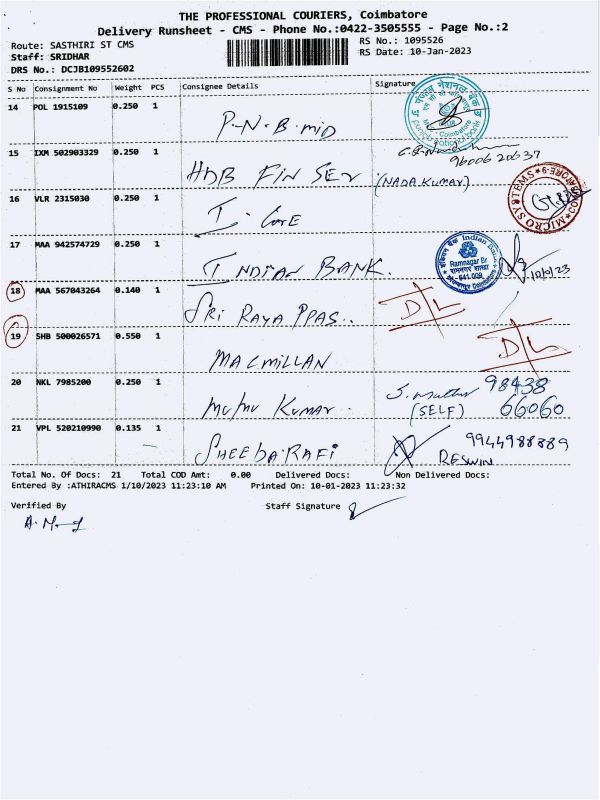 THE PROFESSIONAL COURIERS, Coimbatore
Delivery Runsheet - CMS - Phone No.:0422-3505555 - Page No.:2
Route: SASTHIRI ST CMS
RS No.: 1095526
Staff: SRIDHAR
RS Date: 10-Jan-2023
DRS No.: DCJB109552602
S No Consignment No Weight PCS Consignee Details Signature
14 POL 1915109 0.250 1
P.N.B. mID
15 IXM 502903329 0.250 1
9600620637
HDB FIN SER (NADA.KUMAR)
16 VLR 2315030 0.250 1
MICRO SYSTEMS
I. CARE
17 MAA 942574729 0.250 1
Indian Bank
Ramnagar Br
641 009
INDIAN BANK. 10/1/23
18 MAA 567043264 0.140 1
SRI RAYA PPAS.. D/L
19 SHB 500026571 0.550 1
MACMILLAN D/L
20 NKL 7985200 0.250 1
98438
Kumar. (SELF) 66060
21 VPL 520210990 0.135 1
9944988889
SHEEBA.RAFI RESWIN
Total No. Of Docs: 21 Total COD Amt: 0.00 Delivered Docs: Non Delivered Docs:
Entered By :ATHIRACMS 1/10/2023 11:23:10 AM Printed On: 10-01-2023 11:23:32
Verified By Staff Signature